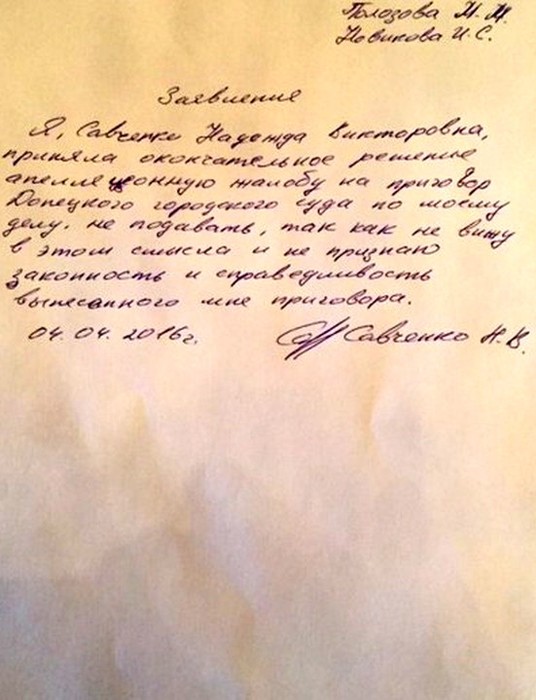 Полозова Н. Н.
Новикова И. С.
Заявление
Я, Савченко Надежда Викторовна,
приняла окончательное решение
апелляционную жалобу на приговор
Донецкого городского суда по моему
делу, не подавать, так как не вижу
в этом смысла и не признаю
законность и справедливость
вынесанного мне приговора.
04.04.2016г.
Савченко Н.В.